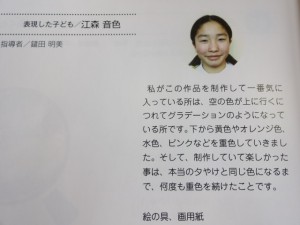 表現した子ども／江森 音色
指導者／鎚田 明美
私がこの作品を制作して一番気に
入っている所は、空の色が上に行くに
つれてグラデーションのようになって
いる所です。下から黄色やオレンジ色、
水色、ピンクなどを重色していきまし
た。そして、制作していて楽しかった
事は、本当の夕やけと同じ色になるま
で、何度も重色を続けたことです。
絵の具、画用紙